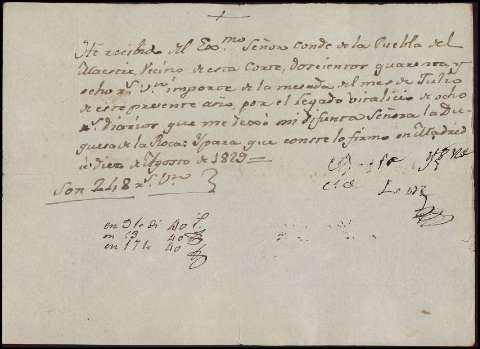 He recibido del Exmo Señor Conde de la Puebla del
Maestre, Vecino de esta Corte, doscientos quarenta y
ocho rs. Vn. importe de la mesada del mes de Julio
de este presente año, por el Legado vitalicio de ocho
rs. diarios que me dexó mi difunta Señora la Du-
quesa de la Roca: Y para que conste lo firmo en Madrid
à diez de Agosto de 1829
Son 248 rs. Vn.
en 31 de 40
en 13 40
en 17 40